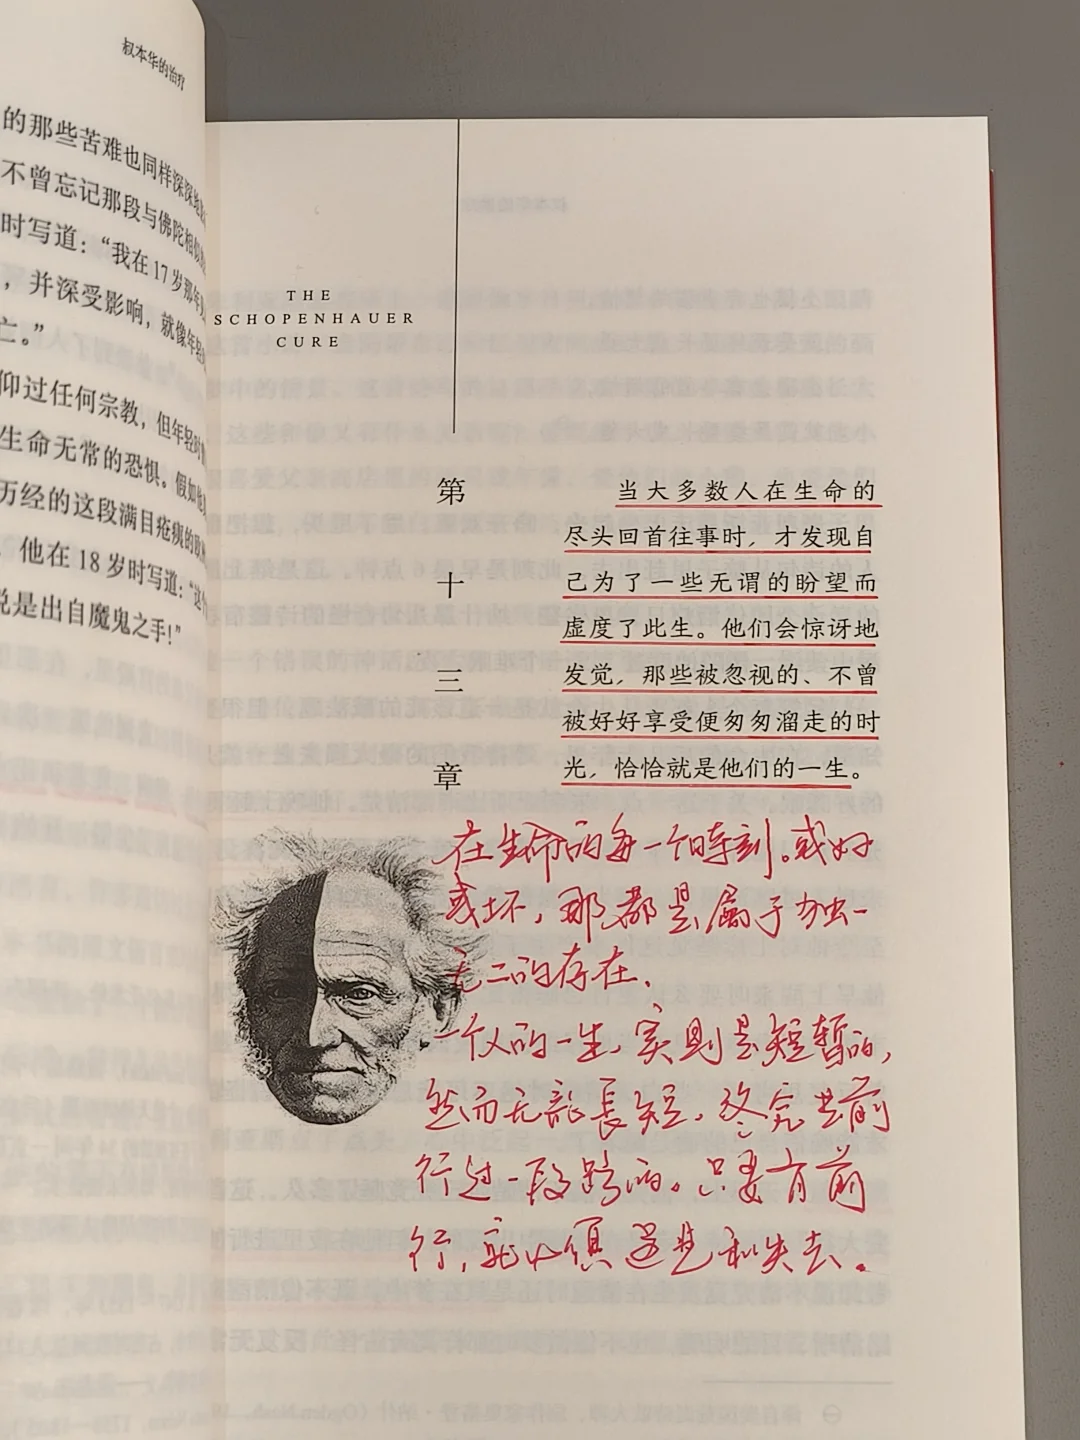 叔本华的治疗
的那些苦难也同样深深地
不曾忘记那段与佛陀相似的
时写道：“我在17岁那年
，并深受影响，就像年轻的
亡。”
仰过任何宗教，但年轻时
生命无常的恐惧。假如他
历经的这段满目疮痍的欧洲
他在18岁时写道：“这个
说是出自魔鬼之手！”
THE
SCHOPENHAUER
CURE
第十三章
当大多数人在生命的
尽头回首往事时，才发现自
己为了一些无谓的盼望而
虚度了此生。他们会惊讶地
发觉，那些被忽视的、不曾
被好好享受便匆匆溜走的时
光，恰恰就是他们的一生。
在生命的每一个时刻。或好
或坏，那都是属于独一
无二的存在、
一个人的一生，实则是短暂的，
然而无论長短，终究要前
行过一段路的。只要有前
行，就必須遇见和失去。